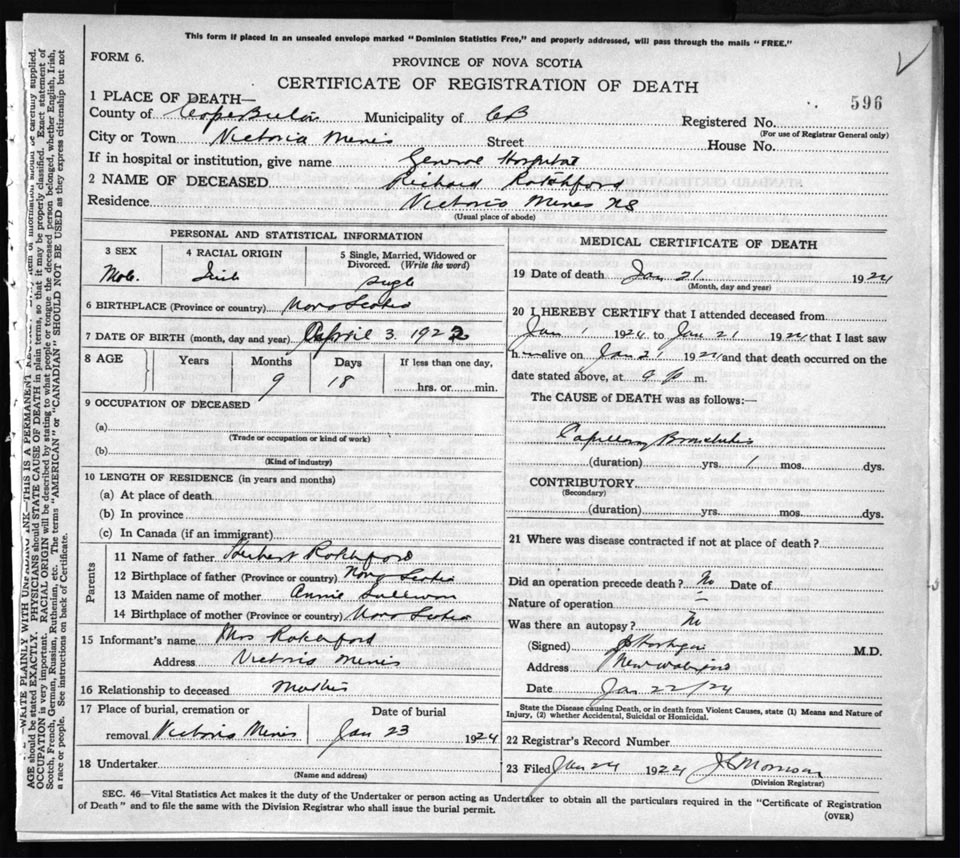 This form if placed in an unsealed envelope marked "Dominion Statistics Free," and properly addressed, will pass through the mails "FREE."
FORM 6.
PROVINCE OF NOVA SCOTIA
CERTIFICATE OF REGISTRATION OF DEATH
596
1 PLACE OF DEATH—
County of Cape Breton Municipality of CB Registered No.
(For use of Registrar General only)
City or Town Victoria Mines Street House No.
If in hospital or institution, give name General Hospital
2 NAME OF DECEASED Richard Rotchford
Residence Victoria Mines NS
(Usual place of abode)
PERSONAL AND STATISTICAL INFORMATION
3 SEX 4 RACIAL ORIGIN 5 Single, Married, Widowed or Divorced. (Write the word)
Male Irish Single
6 BIRTHPLACE (Province or country) Nova Scotia
7 DATE OF BIRTH (month, day and year) April 3 1922
8 AGE Years Months Days If less than one day,
9 18 hrs. or min.
9 OCCUPATION OF DECEASED
(a)
(Trade or occupation or kind of work)
(b)
(Kind of industry)
10 LENGTH OF RESIDENCE (in years and months)
(a) At place of death
(b) In province
(c) In Canada (if an immigrant)
Parents
11 Name of father Herbert Rotchford
12 Birthplace of father (Province or country) Nova Scotia
13 Maiden name of mother Annie Sullivan
14 Birthplace of mother (Province or country) Nova Scotia
15 Informant's name Mrs Rotchford
Address Victoria Mines
16 Relationship to deceased Mother
17 Place of burial, cremation or removal Victoria Mines Date of burial Jan 23 1924
18 Undertaker
(Name and address)
MEDICAL CERTIFICATE OF DEATH
19 Date of death Jan 21 1924
(Month, day and year)
20 I HEREBY CERTIFY that I attended deceased from
Jan 1 1924 to Jan 21 1924 that I last saw
h alive on Jan 21 1924 and that death occurred on
date stated above, at 9 p m.
The CAUSE of DEATH was as follows:—
Capillary Bronchitis
(duration) yrs. 1 mos. dys.
CONTRIBUTORY
(Secondary)
(duration) yrs. mos. dys.
21 Where was disease contracted if not at place of death?
Did an operation precede death? No Date of
Nature of operation
Was there an autopsy? No
(Signed) M.D.
Address New Waterford
Date Jan 22/24
State the Disease causing Death, or in death from Violent Causes, state (1) Means and Nature of
Injury, (2) whether Accidental, Suicidal or Homicidal.
22 Registrar's Record Number
23 Filed Jan 24 1924 Morrison
(Division Registrar)
SEC. 46—Vital Statistics Act makes it the duty of the Undertaker or person acting as Undertaker to obtain all the particulars required in the "Certificate of Registration
of Death" and to file the same with the Division Registrar who shall issue the burial permit.
(OVER)
WRITE PLAINLY WITH UNFADING INK—THIS IS A PERMANENT item of information should be carefully supplied.
AGE should be stated EXACTLY. PHYSICIANS should STATE CAUSE OF DEATH in plain terms, so that it may be properly classified. Exact statement of
OCCUPATION is very important. RACIAL ORIGIN will be described by stating to what people or tongue the deceased person belonged, whether English, Irish,
Scotch, French, German, Russian, Ruthenian, etc. The terms "AMERICAN" or "CANADIAN" SHOULD NOT BE USED as they express citizenship but not
a race or people. See instructions on back of Certificate.